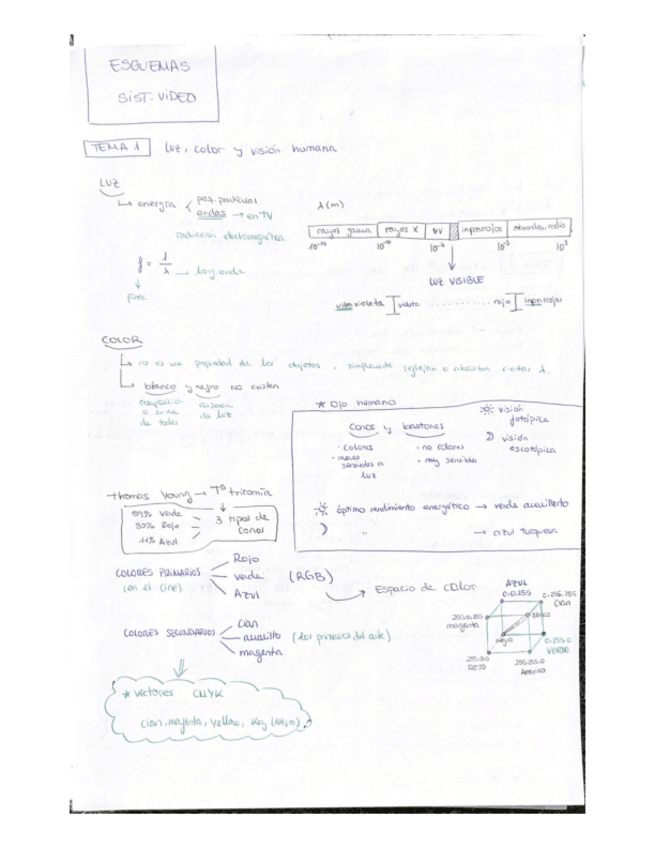 ESQUEMAS
SIST. VIDEO
TEMA 1 luz, color y visión humana
LUZ
energía peq. partículas
ondas → en TV
radiación electromagnética
λ (m)
rayos gamma rayos X UV infrarrojos microondas, radio
10⁻⁵ 10³
f = 1/λ → long. onda
Frec
LUZ VISIBLE
ultravioleta violeta ............ rojo infrarrojos
COLOR
no es una propiedad de los objetos, simplemente reflejan o absorben ciertas λ.
blanco y negro no existen
composición ausencia
o suma de luz
de todos
* Ojo humano
Conos y bastones
· colores · no colores
· menos · muy sensible
sensibles a
luz
visión
fotópica
visión
escotópica
óptimo rendimiento energético → verde amarillento
" → azul turquesa
Thomas Young → Tª tricomía
59% Verde
30% Rojo
11% Azul
3 tipos de
conos
COLORES PRIMARIOS
(en el cine)
Rojo
verde
Azul
(RGB)
Espacio de color
AZUL
0.0.255
Cian
magenta
Blanco
Negro
0.255.0
VERDE
255.0.0
ROJO
255.255.0
Amarillo
COLORES SECUNDARIOS
cian
amarillo
magenta
(los primarios del arte)
* Vectores CMYK
Cian, magenta, yellow, key (negro)